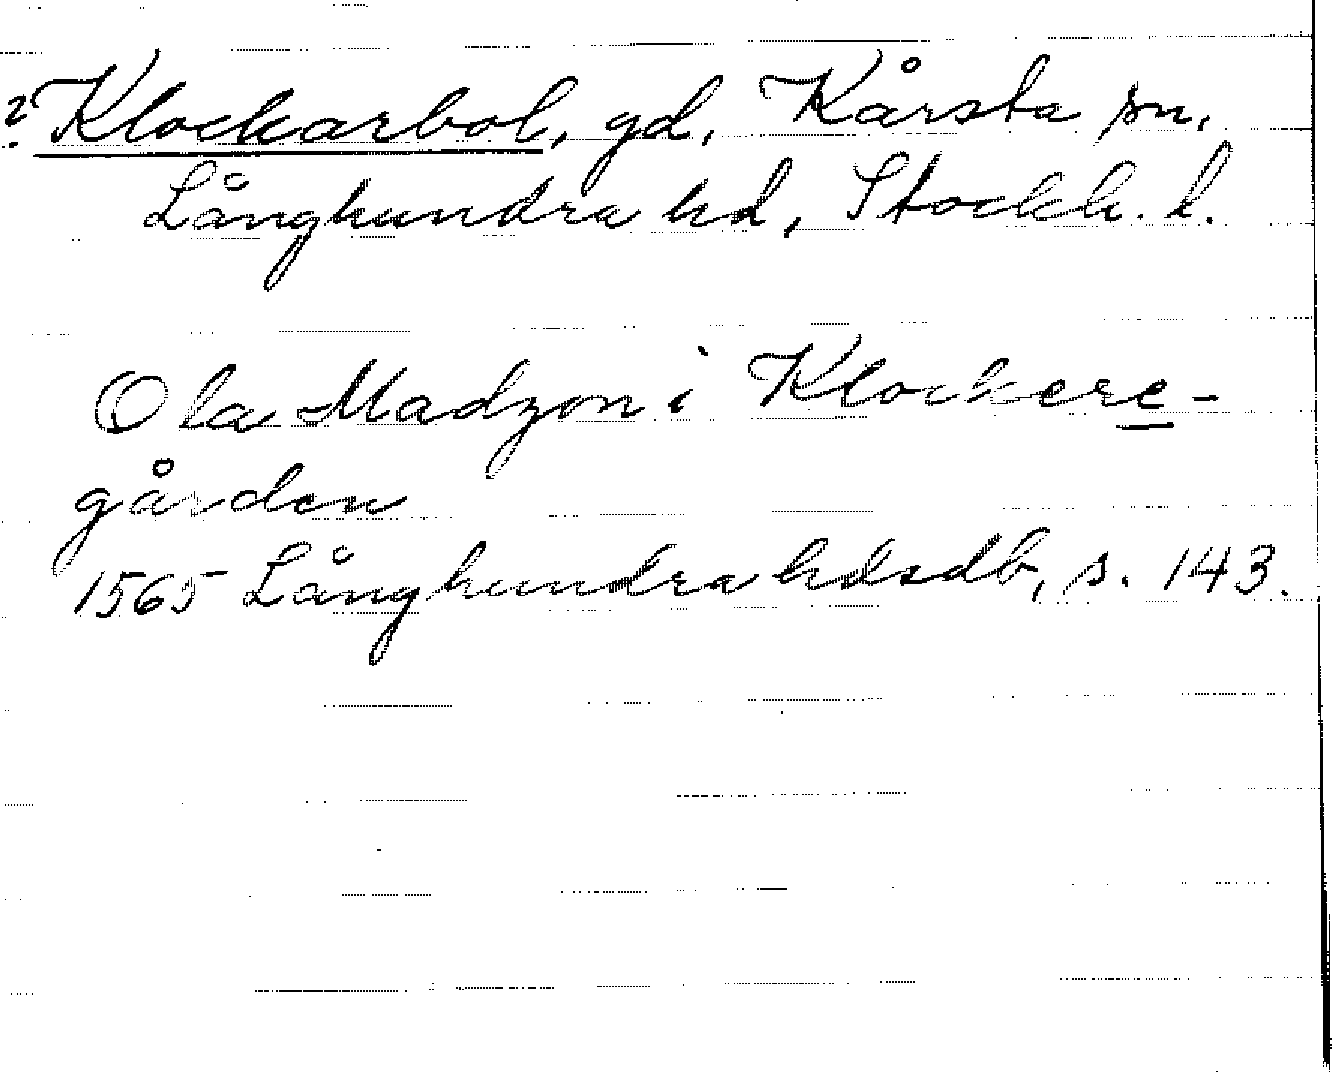 ? Klockarbol, gd, Kårsta sn,
Långhundra hd, Stockh. l.
Ola Madzon i Klockere-
gården
1565 Långhundra hdsdb, s. 143.